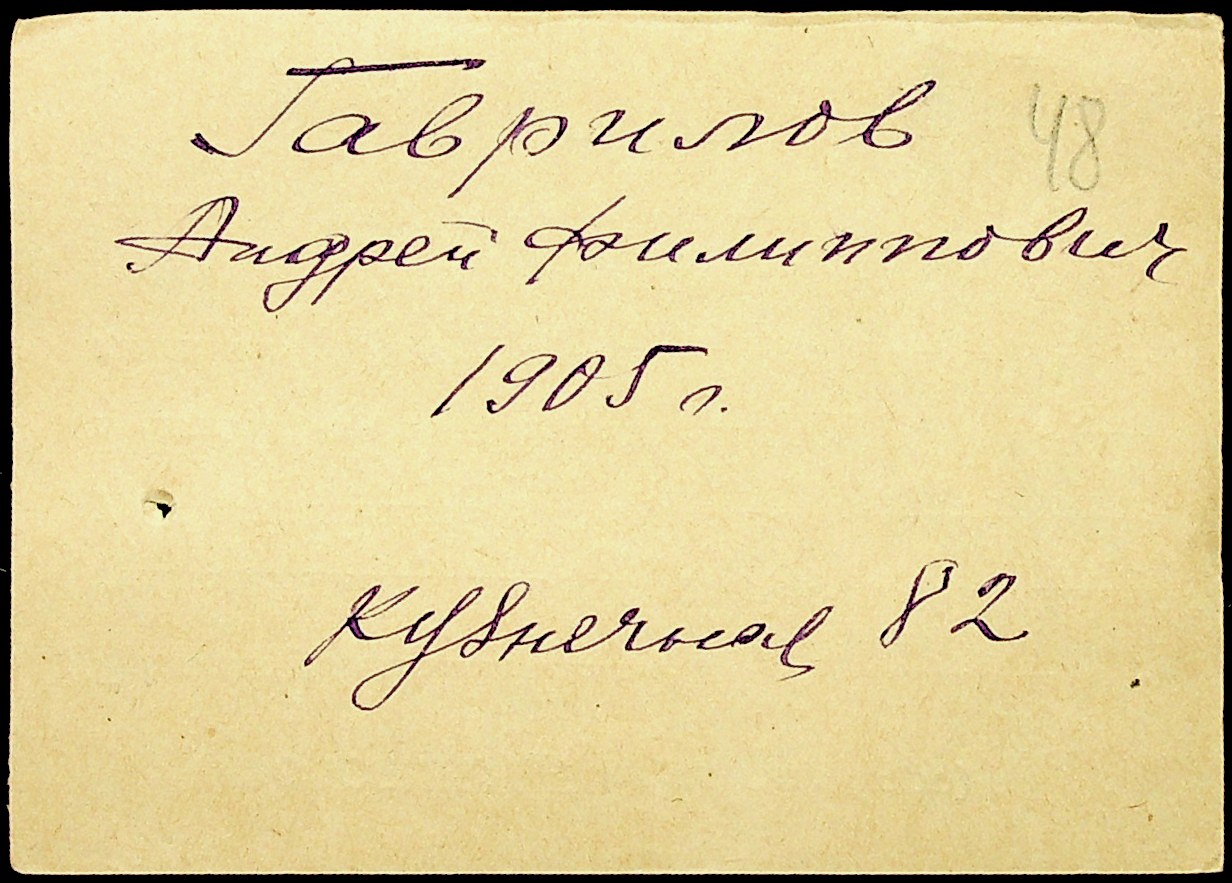 Гаврилов 48
Андрей Филиппович
1905 г.
Кузнечная 82